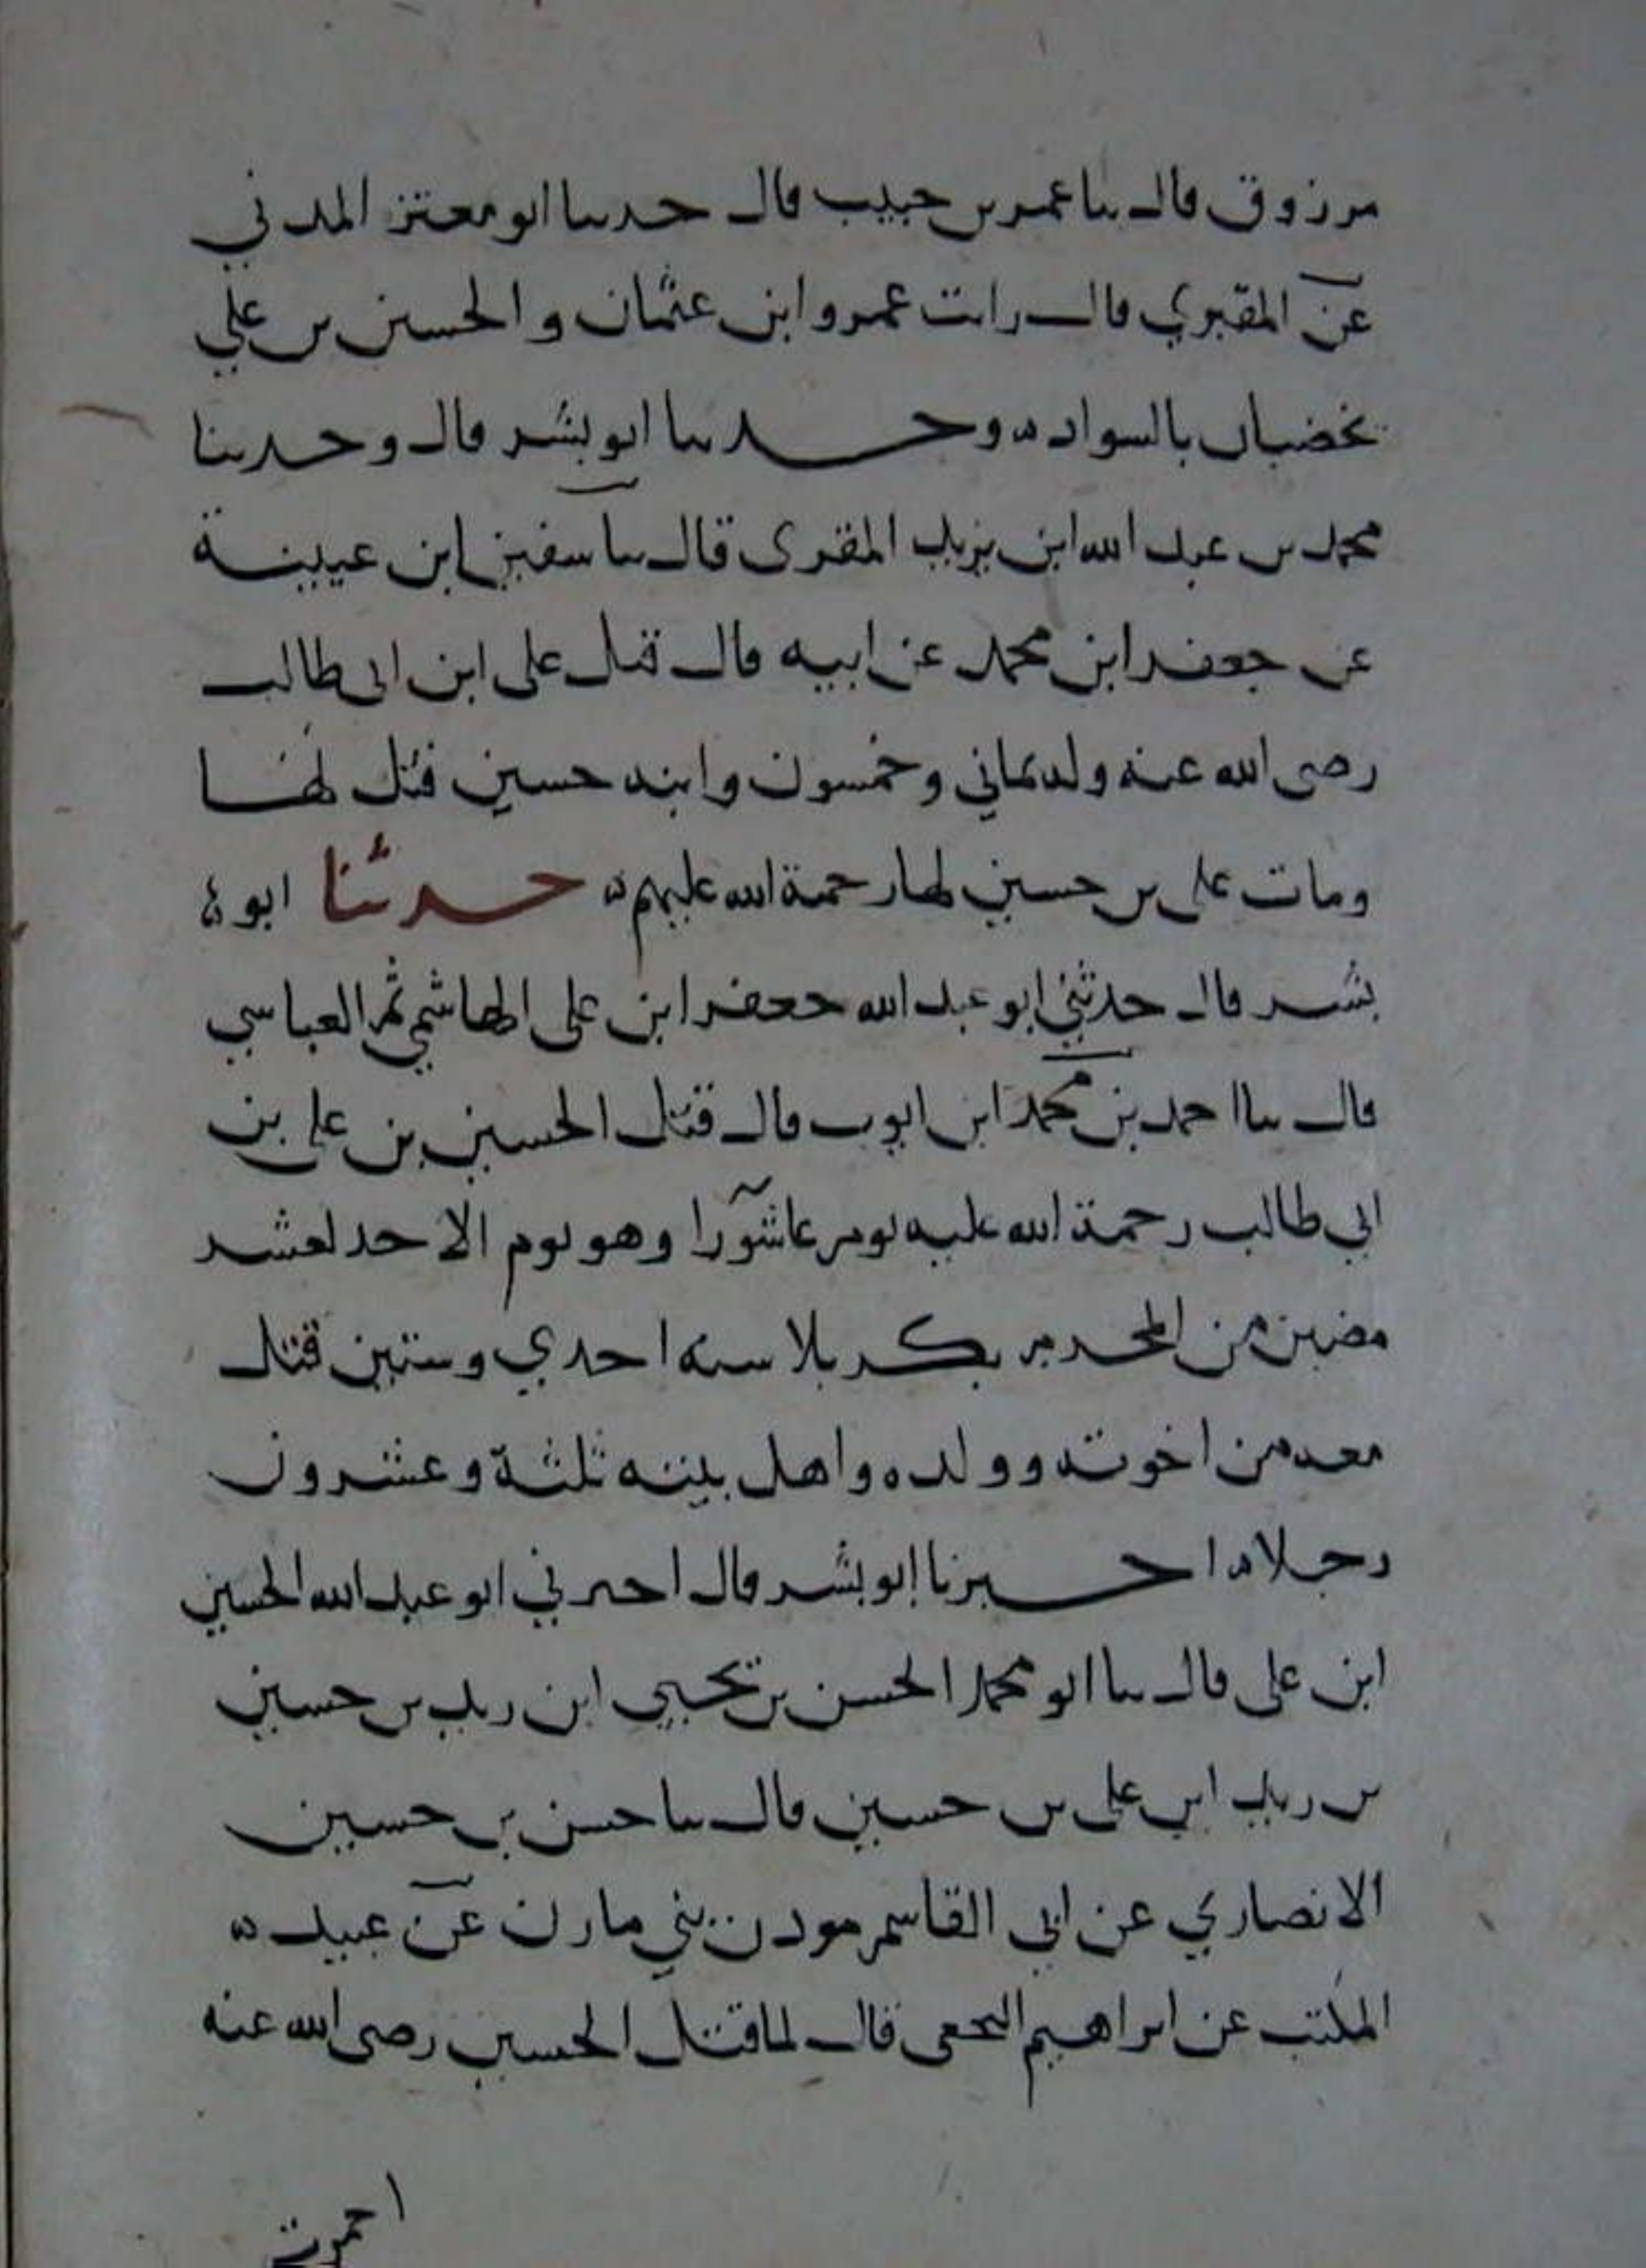 مرزوق قال ثنا عمر بن حبيب قال حدثنا ابو معتز المدني
عن المقبري قال رايت عمرو ابن عثمان والحسين بن علي
يخضبان بالسواد ه وحدثنا ابو بشر قال وحدثنا
محمد بن عبد الله ابن يزيد المقرى قال ثنا سفين ابن عيينة
عن جعفر ابن محمد عن ابيه قال قتل على ابن ابى طالب
رضى الله عنه وله ثماني وخمسون وابنه حسين قتل لها
ومات على بن حسين لها رحمة الله عليهم ه حدثنا ابو
بشر قال حدثني ابو عبد الله جعفر ابن على الهاشمي ثم العباسي
قال ثنا احمد بن محمد ابن ايوب قال قتل الحسين بن علي بن
ابي طالب رحمة الله عليه يوم عاشورا وهو يوم الاحد لعشر
مضين من المحرم بكربلا سنه احدي وستين قتل
معه من اخوته وولده واهل بيته ثلثة وعشرون
رجلا ه اخبرنا ابو بشر قال اخبرني ابو عبد الله الحسين
ابن على قال ثنا ابو محمد الحسن بن يحيي ابن زيد بن حسين
بن زيد ابن على بن حسين قال ثنا حسن بن حسين
الانصاري عن ابي القاسم مودن بني مازن عن عبيد ه
المكتب عن ابراهيم النخعى قال لما قتل الحسين رضى الله عنه
احمرت